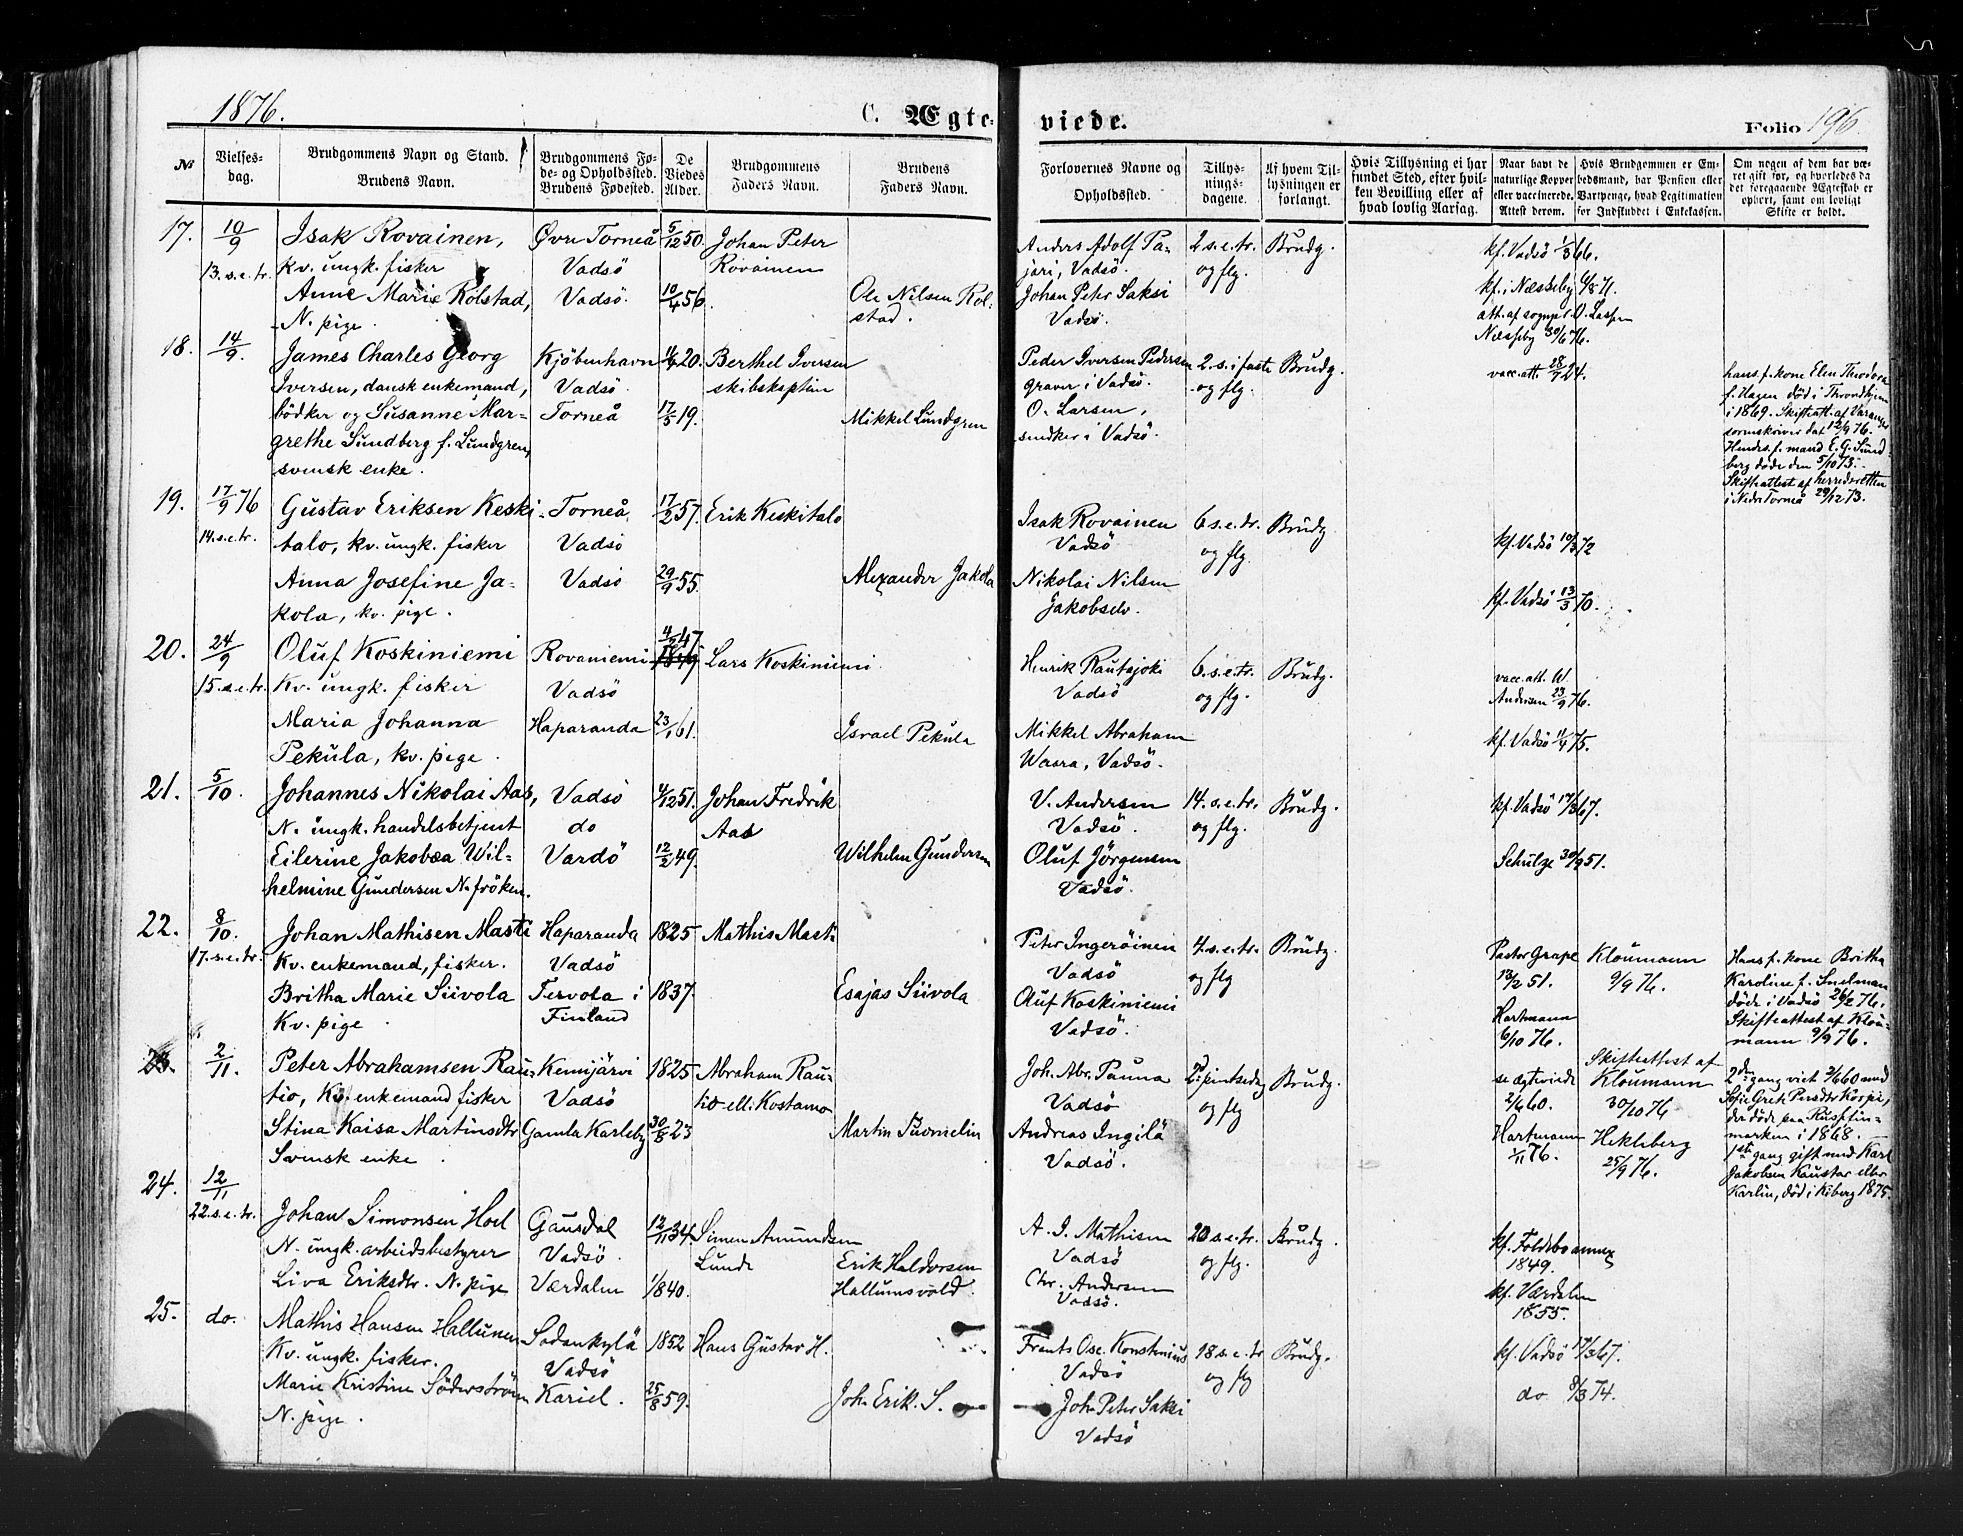 1876.
C. Ægte-
viede.
Folio 196.
No
Vielses-
dag.
Brudgommens Navn og Stand.
Brudens Navn.
Brudgommens Fø-
de- og Opholdssted.
Brudens Fødested.
De
Viedes
Alder.
Brudgommens
Faders Navn.
Brudens
Faders Navn.
Forlovernes Navne og
Opholdssted.
Tillys-
nings-
dagene.
Af hvem Til-
lysningen er
forlangt.
Hvis Tillysning ei har
fundet Sted, efter hvil-
ken Bevilling eller af
hvad lovlig Aarsag.
Naar havt de
naturlige Kopper
eller vaccinerede.
Attest derom.
Hvis Brudgommen er Em-
bedsmand, har Pension eller
Vartpenge, hvad Legitimation
for Indskuddet i Enkekassen.
Om nogen af dem har væ-
ret gift før, og hvorledes da
det foregaaende Ægteskab er
ophørt, samt om lovligt
Skifte er holdt.
17. 10/9 Isak Rovainen, Øvre Torneå 5/12 50. Johan Peter
13. s. e. tr. kv. ungk. fisker Vadsö Rovainen
Anne Marie Rolstad, Vadsö. 10/4 56. Ole Nilsen Rol-
N. pige. stad.
Anders Adolf Pa- 2 s. e. tr. Brudg. kf. Vadsö 1/3 66.
jari, Vadsö. og flg.
Johan Peter Saksi kf. i Næsseby 6/8 71.
Vadsö. att. af sognepr. O. Laspen
Næsseby 30/6 76.
18. 14/9. James Charles Georg Kjöbenhavn 11/4 20. Berthel Iversen
Iversen, dansk enkemand, Vadsö. skibskaptein
bödker og Susanne Mar- Torneå 17/5 19. Mikkel Lundgren
grethe Sundberg f. Lundgren,
svensk enke.
Peder Iversen Pedersen 2. s. i faste Brudg. vacc. att. 28/7 24.
graver i Vadsö. og flg.
O. Larsen,
snedker i Vadsö.
hans f. kone Elen Theodora
f. Hagen död i Throndhjem
i 1869. Skifteatt. af Varanger
sorenskriver dat 12/9 76.
Hendes f. mand E. G. Sund-
berg døde den 5/10 73.
Skifteattest af herredsretten
i Nedr Torneå 29/12 73.
19. 17/9 76 Gustav Eriksen Keski- Torneå. 17/2 57. Erik Keskitalo
14. s. e. tr. talo, kv. ungk. fisker Vadsö
Anna Josefine Ja- Vadsö 29/9 55. Alexander Jakola
kola, kv. pige.
Isak Rovainen 6 s. e. tr. Brudg. kf. Vadsö 10/3 72
Vadsö og flg.
Nikolai Nilsen kf. Vadsö 13/3 70.
Jakobselv.
20. 24/9 Oluf Koskiniemi Rovaniemi 4/2 47 Lars Koskiniemi
15. s. e. tr. Kv. ungk. fisker Vadsö
Maria Johanna Haparanda 23/1 61. Israel Pekula
Pekula, kv. pige.
Henrik Rautajoki 6. s. e. tr. Brudg. vacc. att. W.
Vadsö og flg. Andersen 23/9 76.
Mikkel Abraham kf. Vadsö 11/4 75.
Waara, Vadsö.
21. 5/10. Johannes Nikolai Aas, Vadsö 4/12 51. Johan Fredrik
N. ungk. handelsbetjent do Aas
Eilerine Jakobæa Wil- Vardö 12/2 49. Wilhelm Gundersen
helmine Gundersen N. fröken.
V. Andersen 14. s. e. tr. Brudg. kf. Vadsö 17/3 67.
Vadsö. og flg.
Oluf Jörgensen Schulze 30/9 51.
Vadsö.
22. 8/10. Johan Mathisen Masti Haparanda 1825 Mathis Masti
17. s. e. tr. Kv. enkemand, fisker. Vadsö
Britha Marie Siivola Tervola i 1837. Esajas Siivola
Kv. pige Finland
Peter Ingeröinen 4. s. e. tr. Brudg. Pastor Grape Kloumann
Vadsö og flg 13/2 51. 9/9 76.
Oluf Koskiniemi Hartmann
Vadsö. 6/10 76.
Hans f. kone Britha
Karoline f. Snelman
döde i Vadsö 26/2 76.
Skifteattest af Klou-
mann 9/9 76.
23. 2/11. Peter Abrahamsen Rau- Kemijärvi 1825 Abraham Rau-
tio, Kv. enkemand fisker Vadsö tio ell. Kostamo
Stina Kaisa Martinsdtr Gamla Karleby 30/8 23 Martin Tuomelin
Svensk enke.
Joh. Abr. Pauna 2d pintsedag Brudg. se ægteviede Skifteattest af
Vadsö og flg 2/6 60. Kloumann
Andreas Ingilä Hartmann 30/10 76
Vadsö. 1/11 76. Hekleberg
25/9 76.
2den gang viet 2/6 60 med
Sofie Greta Persdtr Korpi,
der döde paa Rusfin-
marken i 1868.
1ste gang gift med Karl
Jakobsen Kaustar eller
Karlin, död i Kiberg 1875.
24. 12/11
22. s. e. tr. Johan Simonsen Hoel Gausdal 12/11 34. Simen Amundsen
N. ungk. arbeidsbestyrer Vadsö. Lunde
Liva Eriksdtr. N. pige Værdalen 1/8 40. Erik Haldorsen
Hallumsvold.
A. J. Mathisen 20 s. e. tr. Brudg. kf. Foldebo annex
Vadsö og flg. 1849.
Chr. Andersen kf. Værdalen
Vadsö. 1855.
25. do. Mathis Hansen Hallunen Sodankylä 1852 Hans Gustav H.
Kv. ungk. fisker. Vadsö
Marie Kristine Söderström Kariel. 25/8 59. Joh. Erik. S.
N. pige.
Frants Osc. Konstenius 18 s. e. tr Brudg. kf. Vadsö 17/3 67.
Vadsö og flg
Joh. Peter Saksi do 8/3 74.
Vadsö